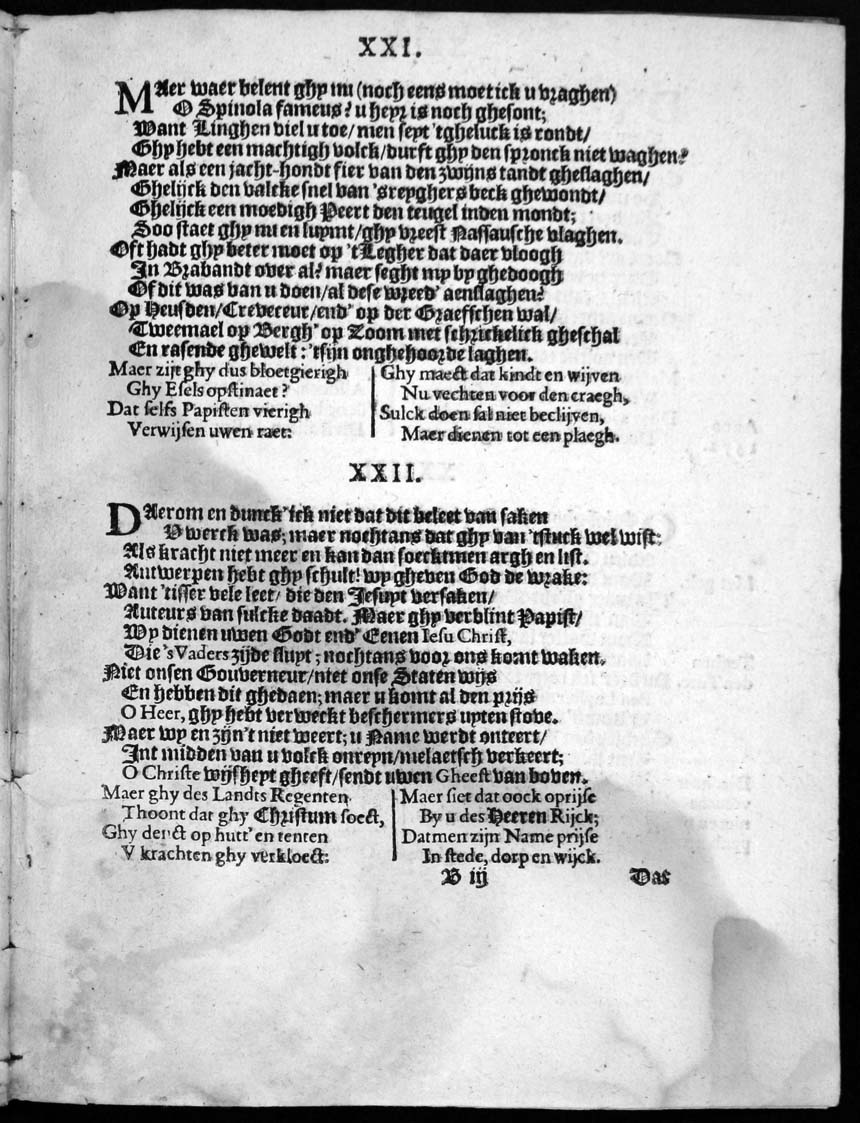 XXI.
MAer waer belent ghy nu (noch eens moet ick u vraghen)
O Spinola fameus? u heyr is noch ghesont;
Want Linghen viel u toe/ men seyt 'tgheluck is rondt/
Ghy hebt een machtigh volck/ durft ghy den spronck niet waghen?
Maer als een jacht-hondt fier van den zwijns tandt gheslaghen/
Ghelijck den valcke snel van 'sreyghers beck ghewondt/
Ghelijck een moedigh Peert den teugel inden mondt;
Soo staet ghy nu en luymt/ ghy vreest Nassausche vlaghen.
Oft hadt ghy beter moet op 'tLegher dat daer vloogh
In Brabandt over al? maer seght my by ghedoogh
Of dit was van u doen/ al dese wreed' aenslaghen?
Op Heusden/ Creveceur/ end' op der Graeffschen wal/
Tweemael op Bergh' op Zoom met schrickelick gheschal
En rasende ghewelt: 'tsijn onghehoorde laghen.
Maer zijt ghy dus bloetgierigh
Ghy Esels opstinaet?
Dat selfs Papisten vierigh
Verwijsen uwen raet:
Ghy maect dat kindt en wijven
Nu vechten voor den craegh,
Sulck doen sal niet beclijven,
Maer dienen tot een plaegh.
XXII.
DAerom en dunck'ick niet dat dit beleet van saken
V werck was; maer nochtans dat ghy van 'tstuck wel wist:
Als kracht niet meer en kan dan soecktmen argh en list.
Antwerpen hebt ghy schult! wy gheven God de wrake:
Want 'tisser vele leet/ die den Jesuyt versaken/
Auteurs van sulcke daadt. Maer ghy verblint Papist/
Wy dienen uwen Godt end' Eenen Iesu Christ,
Die 'sVaders zijde sluyt; nochtans voor ons komt waken.
Niet onsen Gouverneur/ niet onse Staten wijs
En hebben dit ghedaen; maer u komt al den prijs
O Heer, ghy hebt verweckt beschermers uyten stove.
Maer wy en zijn't niet weert; u Name werdt onteert/
Int midden van u volck onreyn/ melaetsch verkeert;
O Christe wijsheyt gheeft/ sendt uwen Gheest van boven.
Maer ghy des Landts Regenten
Thoont dat ghy Christum soect,
Ghy denct op hutt' en tenten
V krachten ghy verkloect:
Maer siet dat oock oprijse
By u des Heeren Rijck;
Datmen zijn Name prijse
In stede, dorp en wijck.
B iij
Das